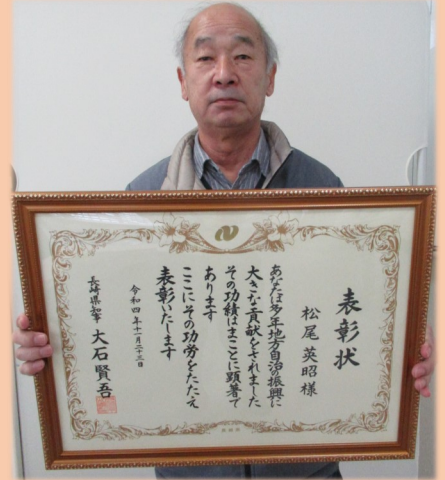 表彰状
松尾英昭様
あなたは多年地方自治の振興に
大きな貢献をされました
その功績はまことに顕著で
あります
ここにその功労をたたえ
表彰いたします
令和四年十一月二十三日
長崎県知事 大石賢吾